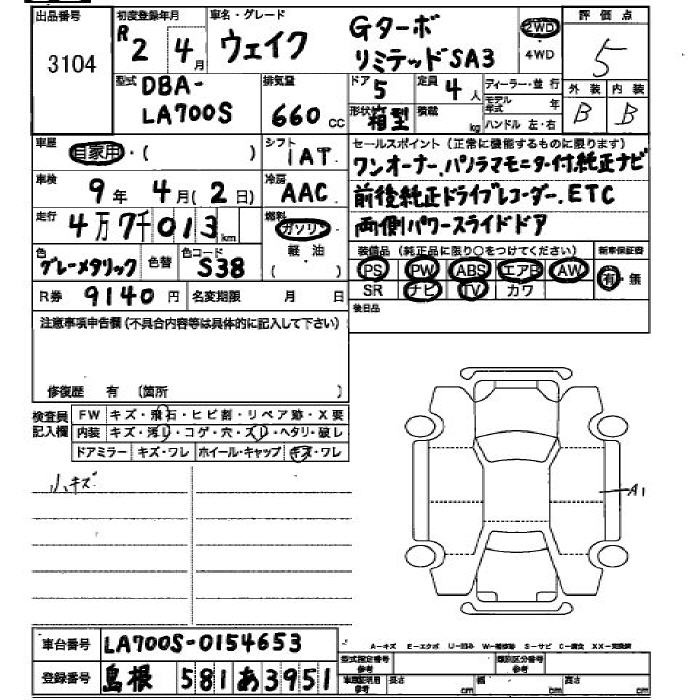 出品番号 初度登録年月 車名・グレード 評価点
3104 R2年 4月 ウェイク Gターボ リミテッドSA3 2WD ・4WD 5
型式 DBA-LA700S 排気量 660cc ドア 5 定員 4人 ディーラー・並行 外装 内装
形状 箱型 積載 kg モデル年式 年 B B
ハンドル 左・右
車歴 自家用・( ) シフト 1AT セールスポイント(正常に機能するものに限ります)
ワンオーナー.パノラマモニター付.純正ナビ
車検 9年 4月(2日) 冷房 AAC 前後純正ドライブレコーダー.ETC
走行 4万7千013km 燃料 ガソリン 両側パワースライドドア
軽油
( )
色 グレーメタリック 色替 色コード S38
装備品(純正品に限り○をつけてください) 新車保証書
PS PW ABS エアB AW 有・無
SR ナビ TV カワ
R券 9140円 名変期限 月 日 後日品
注意事項申告欄(不具合内容等は具体的に記入して下さい)
修復歴 有 (箇所 )
検査員記入欄 FW キズ・飛石・ヒビ割・リペア跡・X要
内装 キズ・汚レ・コゲ・穴・スレ・ヘタリ・破レ
ドアミラー キズ・ワレ ホイール・キャップ キズ・ワレ
小キズ
A1
車台番号 LA700S-0154653
A-キズ E-エクボ U-凹み W-補修跡 S-サビ C-腐食 XX-交換済
登録番号 島根 581 あ3951
型式指定番号 参考 類別区分番号 参考
車庫証明用 参考 長さ cm 幅 cm 高さ cm